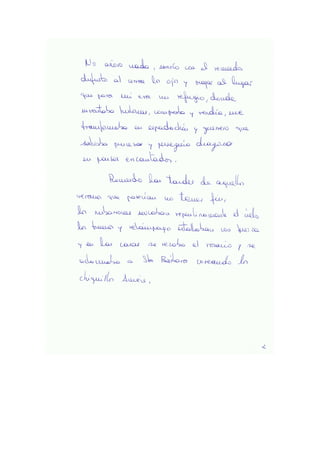 No existo nada, sonrío con el recuerdo
disfruto al cerrar los ojos y viajar al lugar
que para mí era un refugio, donde
inventaba historias, compraba y vendía, me
transformaba en espadachín y guerrero que
salvaba princesas y perseguía dragones
en parajes encantados.
Recuerdo las tardes de aquellos
veranos que parecían no tener fin,
las nubes oscurecían repentinamente el cielo
los truenos y relámpagos estallaban con fuerza
y en las casas se rezaba el rosario y se
a Sta Bárbara
chiquillos